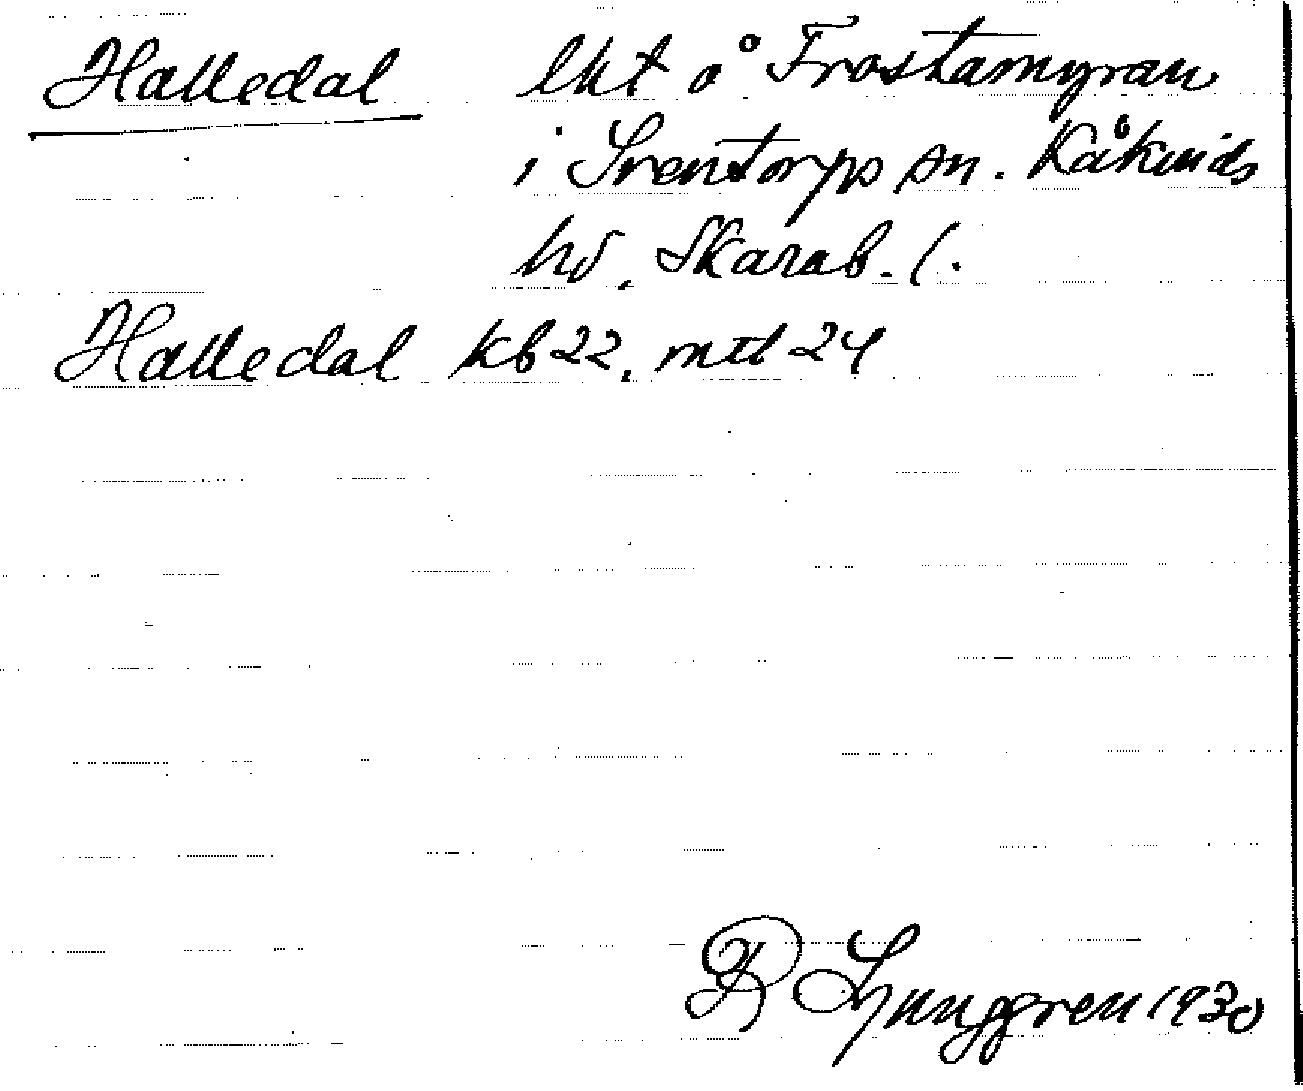 Halledal lht å Frostamyran
i Sventorps sn. Kåkinds
hd. Skarab. l.
Halledal kb 22, mtl 24
R Ljunggren 1930